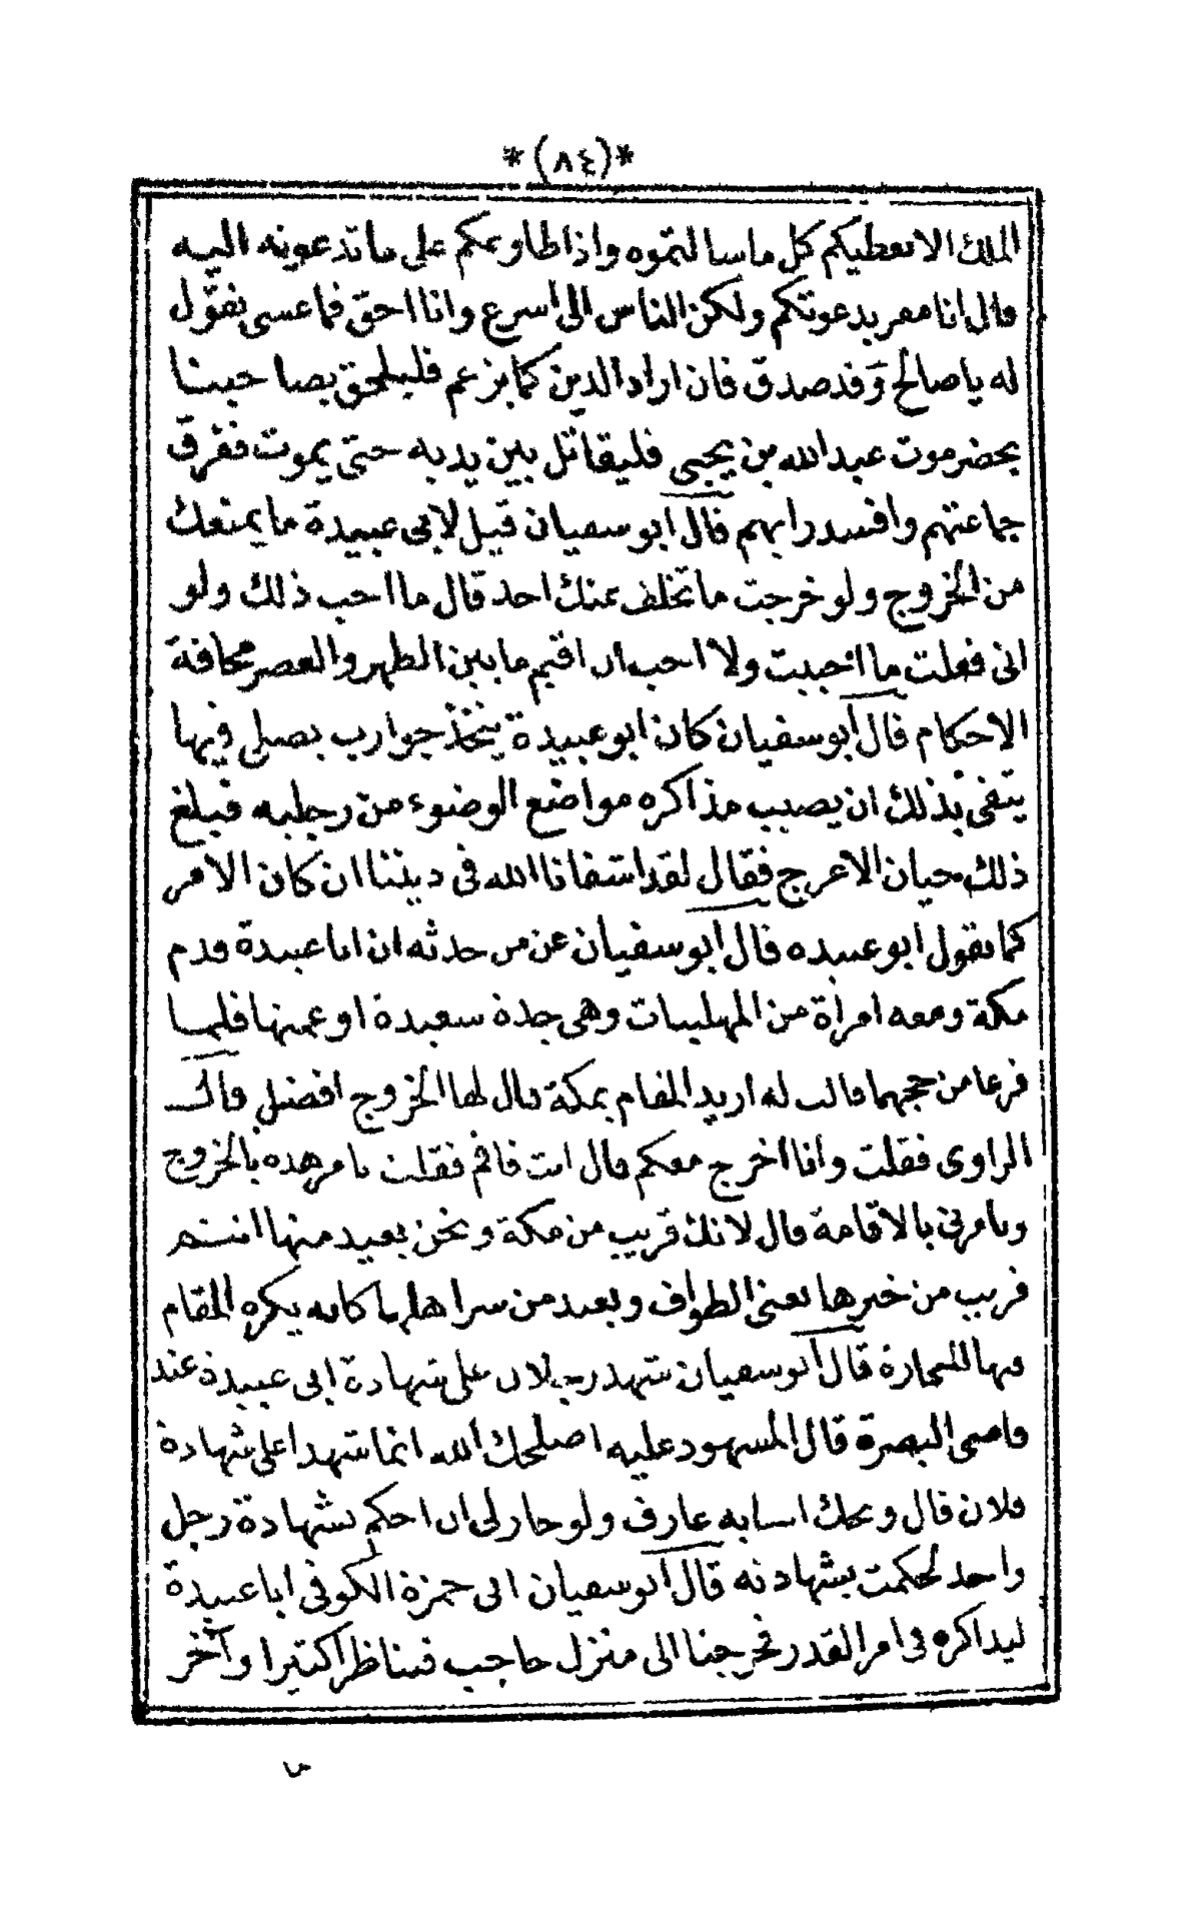 *(٨٤)*
الملك الا نعطيكم كل ما سالتموه واذا طاوعكم على ما تدعونه اليه
قال انا مقر بدعوتكم ولكن الناس الى اسرع وانا احق فما عسى نقول
له يا صالح وقد صدق فان اراد الدين كما يزعم فليلحق بصاحبنا
بحضرموت عبد الله بن يحيى فليقاتل بين يديه حتى يموت ففرق
جماعتهم وافسد رايهم قال ابو سفيان قيل لابى عبيدة ما يمنعك
من الخروج ولو خرجت ما تخلف عنك احد قال ما احب ذلك ولو
انى فعلت ما احببت ولا احب ان اقيم ما بين الظهر والعصر مخافة
الاحكام قال ابو سفيان كان ابو عبيدة يتخذ جوارب يصلى فيها
يتقى بذلك ان يصيب مذاكره مواضع الوضوء من رجليه فبلغ
ذلك حيان الاعرج فقال لقد اشقانا الله فى ديننا ان كان الامر
كما يقول ابو عبيده قال ابو سفيان عن من حدثه ان ابا عبيدة قدم
مكة ومعه امراة من المهلبيات وهى جدة سعيدة او عمتها فلما
فرغا من حجهما قالت له اريد المقام بمكة قال لها الخروج افضل قال
الراوى فقلت وانا اخرج معكم قال انت فاقم فقلت تامر هذه بالخروج
وتامرنى بالاقامة قال لانك قريب من مكة ونحن بعيد منها انتم
قريب من خيرها يعنى الطواف وبعيد من سراها كانه يكره المقام
فيها للتجارة قال ابو سفيان شهد رجلان على شهادة ابى عبيدة عند
قاضى البصرة قال المشهود عليه اصلحك الله انما شهدا على شهادة
فلان قال ويحك انا به عارف ولو جاز لى ان احكم بشهادة رجل
واحد لحكمت بشهادته قال ابو سفيان اتى حمزة الكوفى ابا عبيدة
ليذاكره فى امر القدر فخرجنا الى منزل حاجب فتناظرا كثيرا وآخر